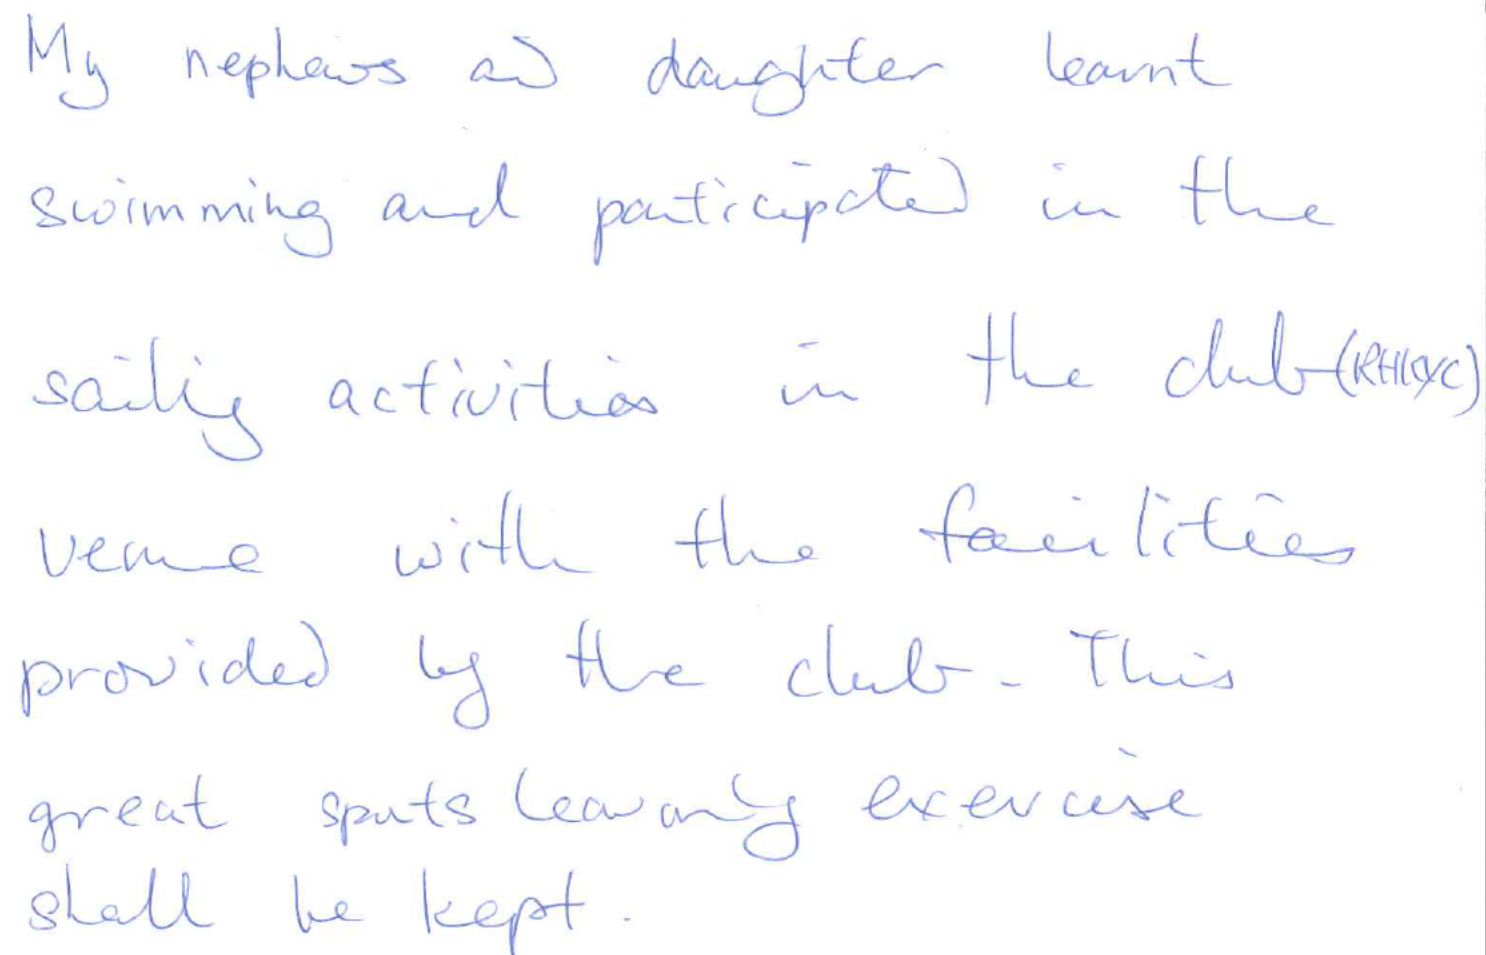 My nephews and daughter learnt
swimming and participated in the
sailing activities in the club (RHKYC)
venue with the facilities
provided by the club. This
great sports learning exercise
shall be kept.